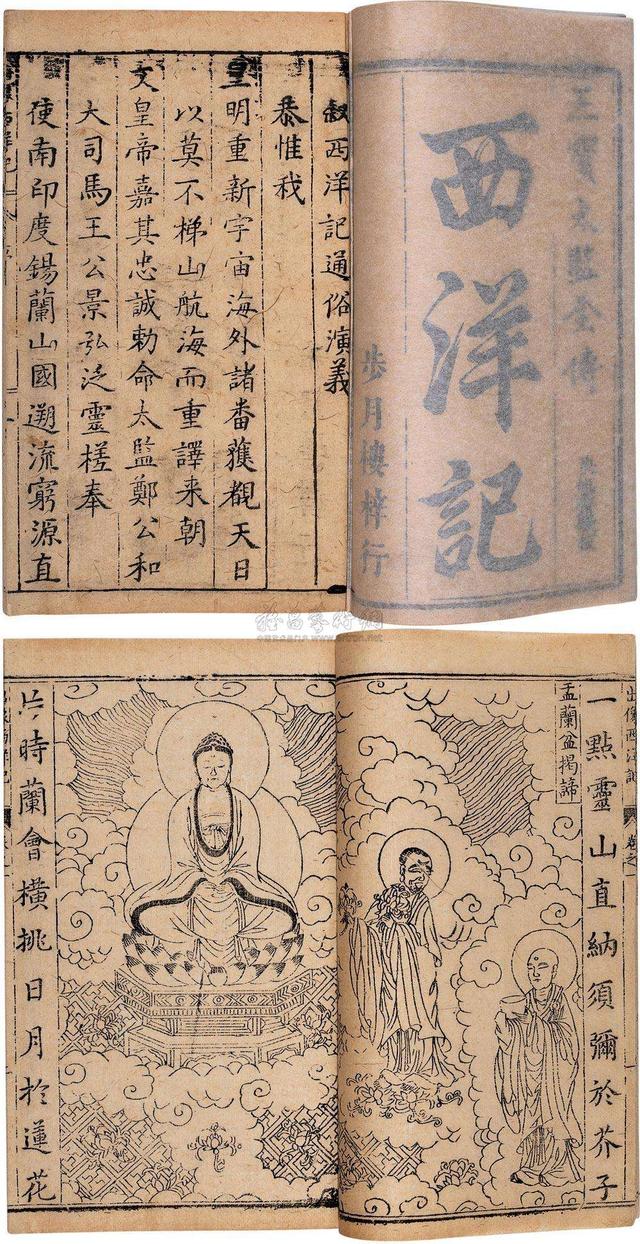 三寶太監全傳
西洋記
步月樓梓行
敘西洋記通俗演義
恭惟我
皇明重新宇宙海外諸番獲覩天日
以莫不梯山航海而重譯来朝
文皇帝嘉其忠誠勅命太監鄭公和
大司馬王公景弘泛靈槎奉
使南印度錫蘭山國遡流窮源直
出像西洋記
卷之一
一點靈山直納須彌於芥子
盂蘭盆揭諦
片時蘭會橫挑日月於蓮花